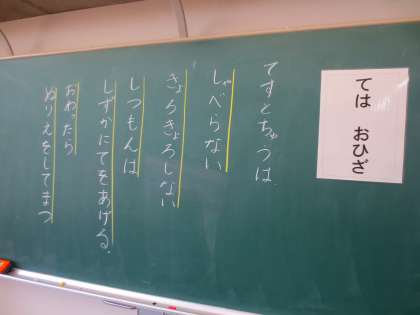 ては　おひざ
てすとちゅうは
しゃべらない
きょろきょろしない
しつもんは
しずかにてをあげる.
おわったら
ぬりえをしてまつ